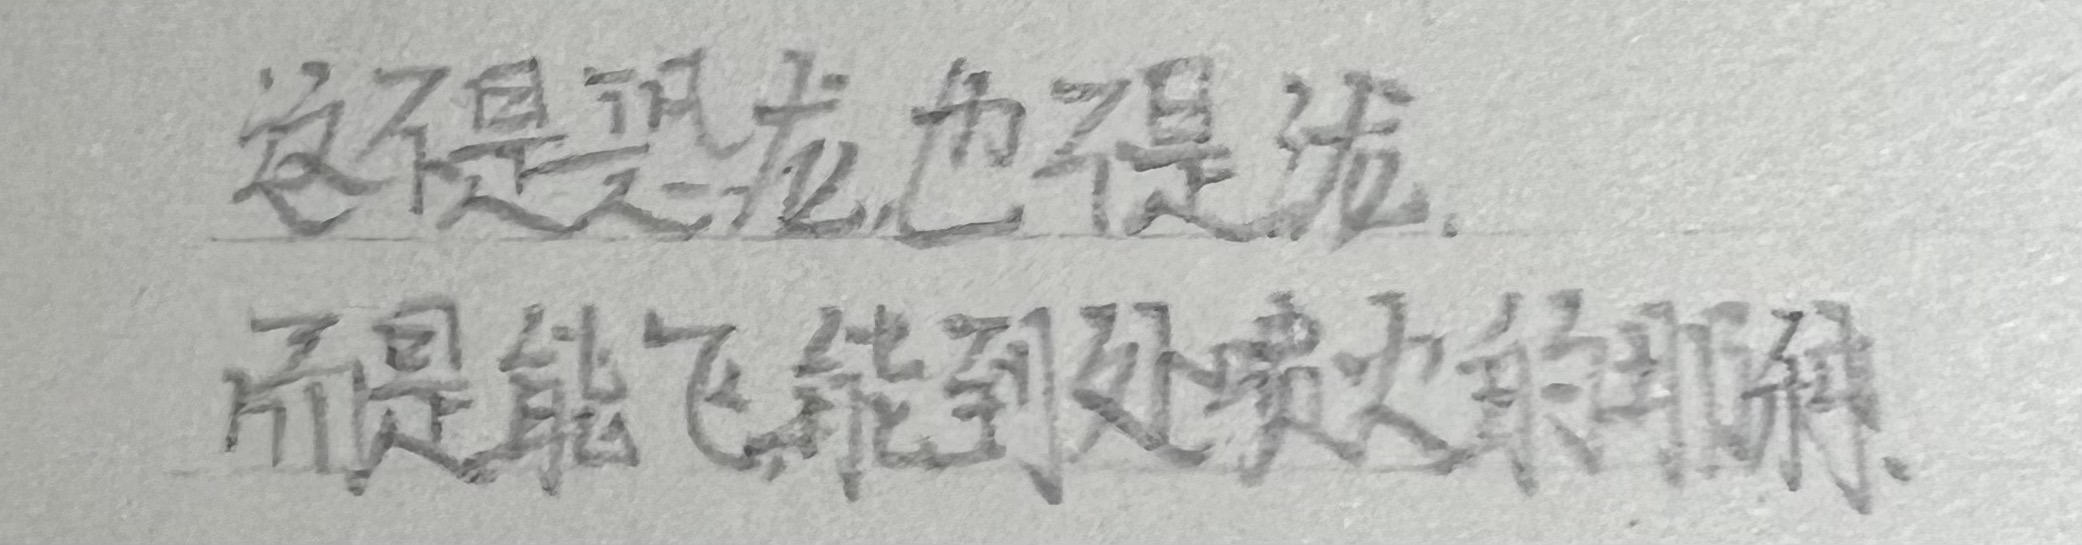 这不是恐龙,也不是龙.
而是能飞,能到处喷火的那